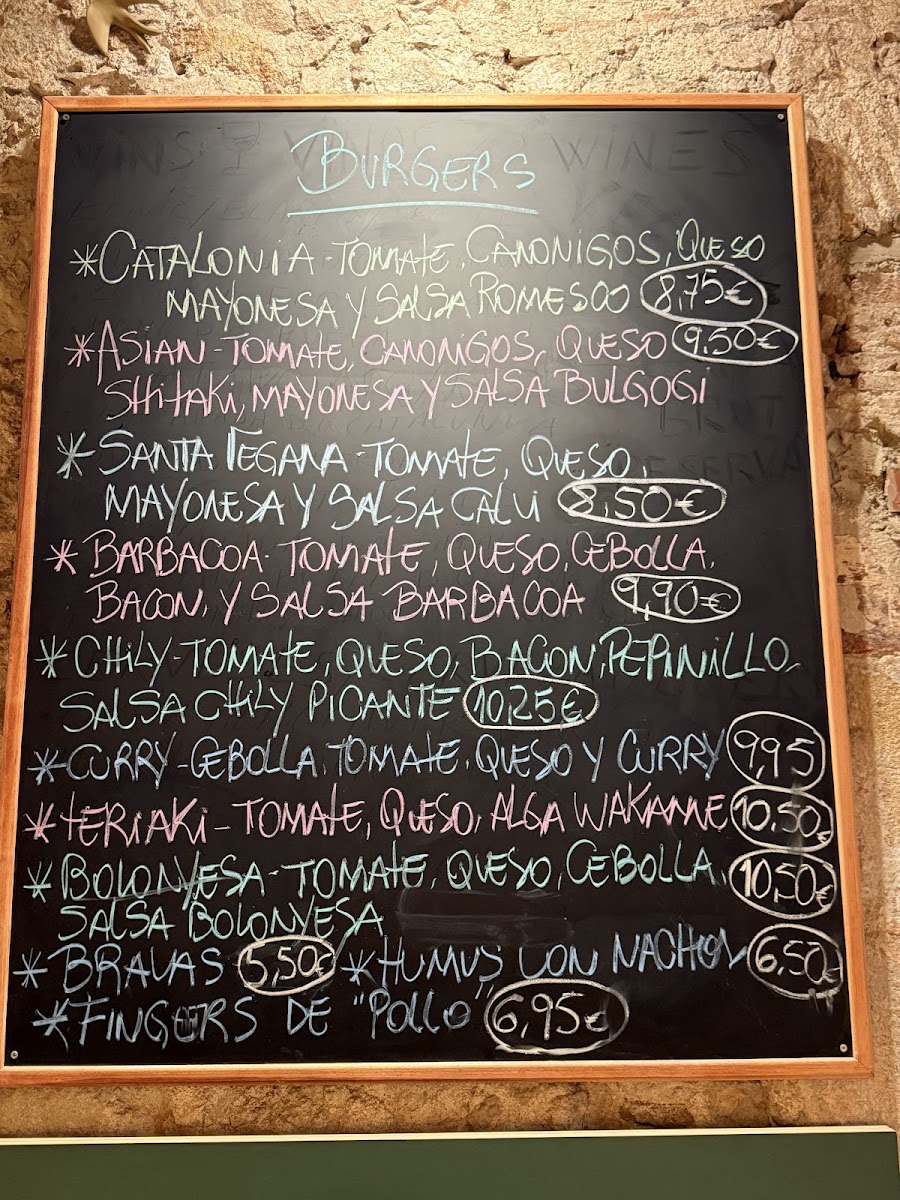 BURGERS
*CATALONIA-TOMATE, CANONIGOS, QUESO
MAYONESA Y SALSA ROMESCO 8,75€
*ASIAN-TOMATE, CANONIGOS, QUESO 9,50€
SHITAKI, MAYONESA Y SALSA BULGOGI
*SANTA VEGANA-TOMATE, QUESO,
MAYONESA Y SALSA CALÚ 8,50€
*BARBACOA-TOMATE, QUESO, CEBOLLA,
BACON, Y SALSA BARBACOA 9,90€
*CHILY-TOMATE, QUESO, BACON, PEPINILLO,
SALSA CHILY PICANTE 10,25€
*CURRY-CEBOLLA, TOMATE, QUESO Y CURRY 9,95
*TERIAKI-TOMATE, QUESO, ALGA WAKAME 10,50€
*BOLONYESA-TOMATE, QUESO, CEBOLLA, 10,50€
SALSA BOLONYESA
*BRAVAS 5,50€ *HUMUS CON NACHOS 6,50€
*FINGERS DE "POLLO" 6,95€